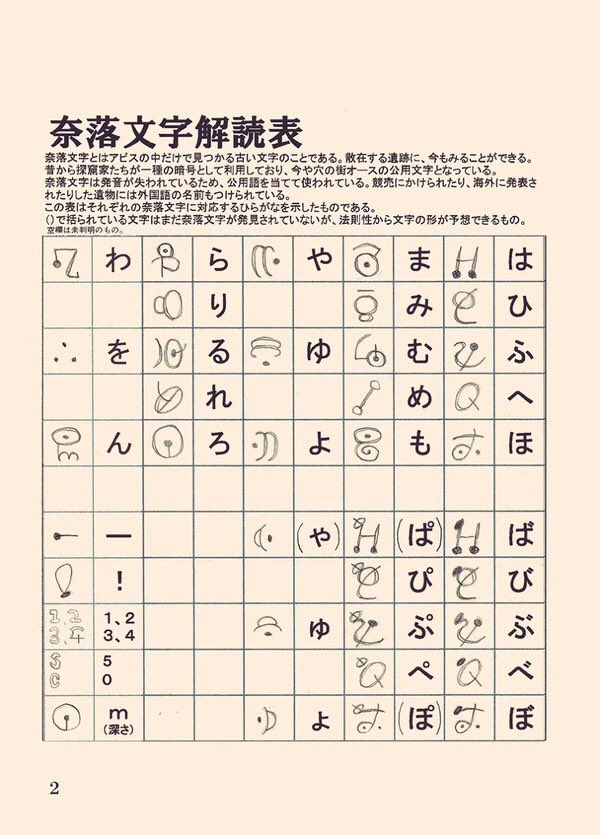 奈落文字解読表
奈落文字とはアビスの中だけで見つかる古い文字のことである。散在する遺跡に、今もみることができる。
昔から探窟家たちが一種の暗号として利用しており、今や穴の街オースの公用文字となっている。
奈落文字は発音が失われているため、公用語を当てて使われている。競売にかけられたり、海外に発表さ
れたりした遺物には外国語の名前もつけられている。
この表はそれぞれの奈落文字に対応するひらがなを示したものである。
()で括られている文字はまだ奈落文字が発見されていないが、法則性から文字の形が予想できるもの。
空欄は未判明のもの。
わ ら や ま は
り み ひ
を る ゆ む ふ
れ め へ
ん ろ よ も ほ
ー (ゃ) (ぱ) ば
! ぴ び
1,2 3,4 1、2 3、4 ゅ ぷ ぶ
5 0 ぺ べ
m (深さ) ょ (ぽ) ぼ
2